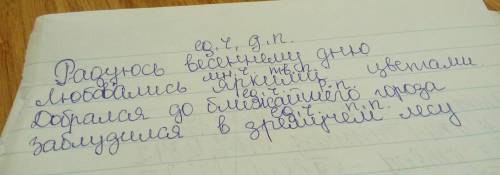 ед.ч, д.п.
Радуюсь весеннему дню
мн.ч. тв.п.
Любовались яркими цветами
ед.ч. р.п.
Добрался до ближайшего города
ед.ч. п.п.
Заблудился в дремучем лесу